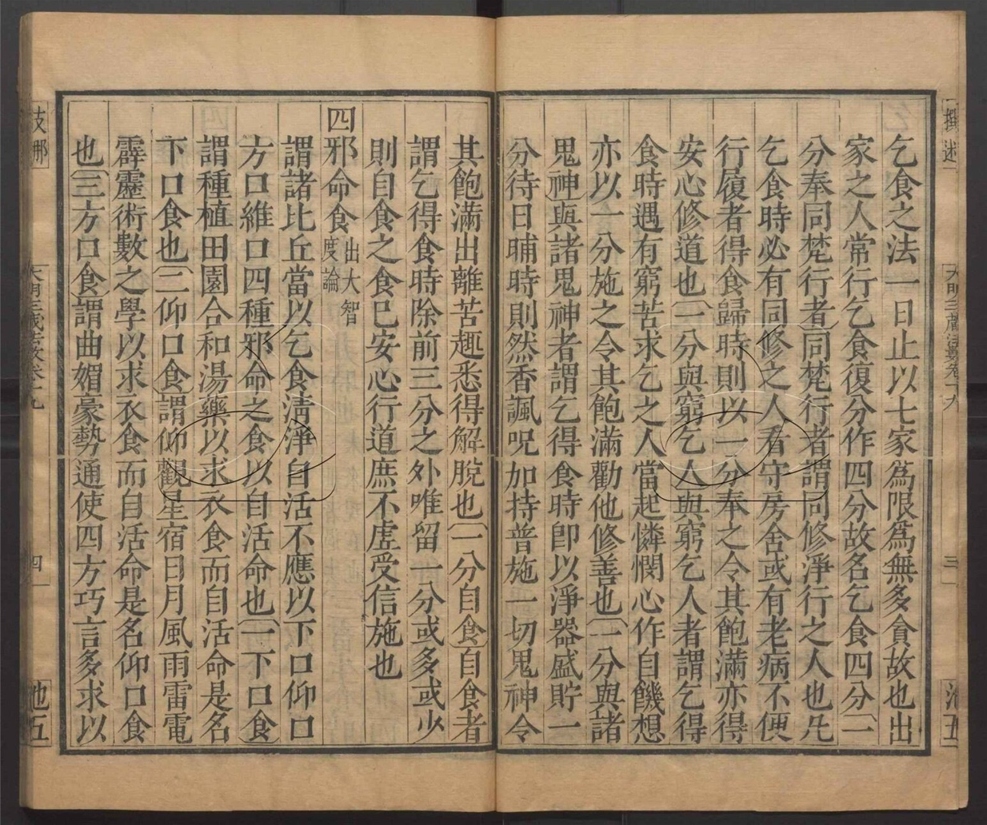 撰述
大明三藏法數卷十九
三
乞食之法一日止以七家爲限爲無多貪故也出
家之人常行乞食復分作四分故名乞食四分〔一
分奉同梵行者〕同梵行者謂同修淨行之人也凡
乞食時必有同修之人看守房舍或有老病不便
行履者得食歸時則以一分奉之令其飽滿亦得
安心修道也〔一分與窮乞人〕與窮乞人者謂乞得
食時遇有窮苦求乞之人當起憐憫心作自饑想
亦以一分施之令其飽滿勸他修善也〔一分與諸
鬼神〕與諸鬼神者謂乞得食時卽以淨器盛貯一
分待日晡時則然香諷呪加持普施一切鬼神令
其飽滿出離苦趣悉得解脫也〔一分自食〕自食者
謂乞得食時除前三分之外唯留一分或多或少
則自食之食已安心行道庶不虛受信施也
四邪命食出大智度論
謂諸比丘當以乞食清淨自活不應以下口仰口
方口維口四種邪命之食以自活命也〔一下口食〕
謂種植田園合和湯藥以求衣食而自活命是名
下口食也〔二仰口食〕謂仰觀星宿日月風雨雷電
霹靂術數之學以求衣食而自活命是名仰口食
也〔三方口食〕謂曲媚豪勢通使四方巧言多求以
大明三藏法數卷十九
四
池五